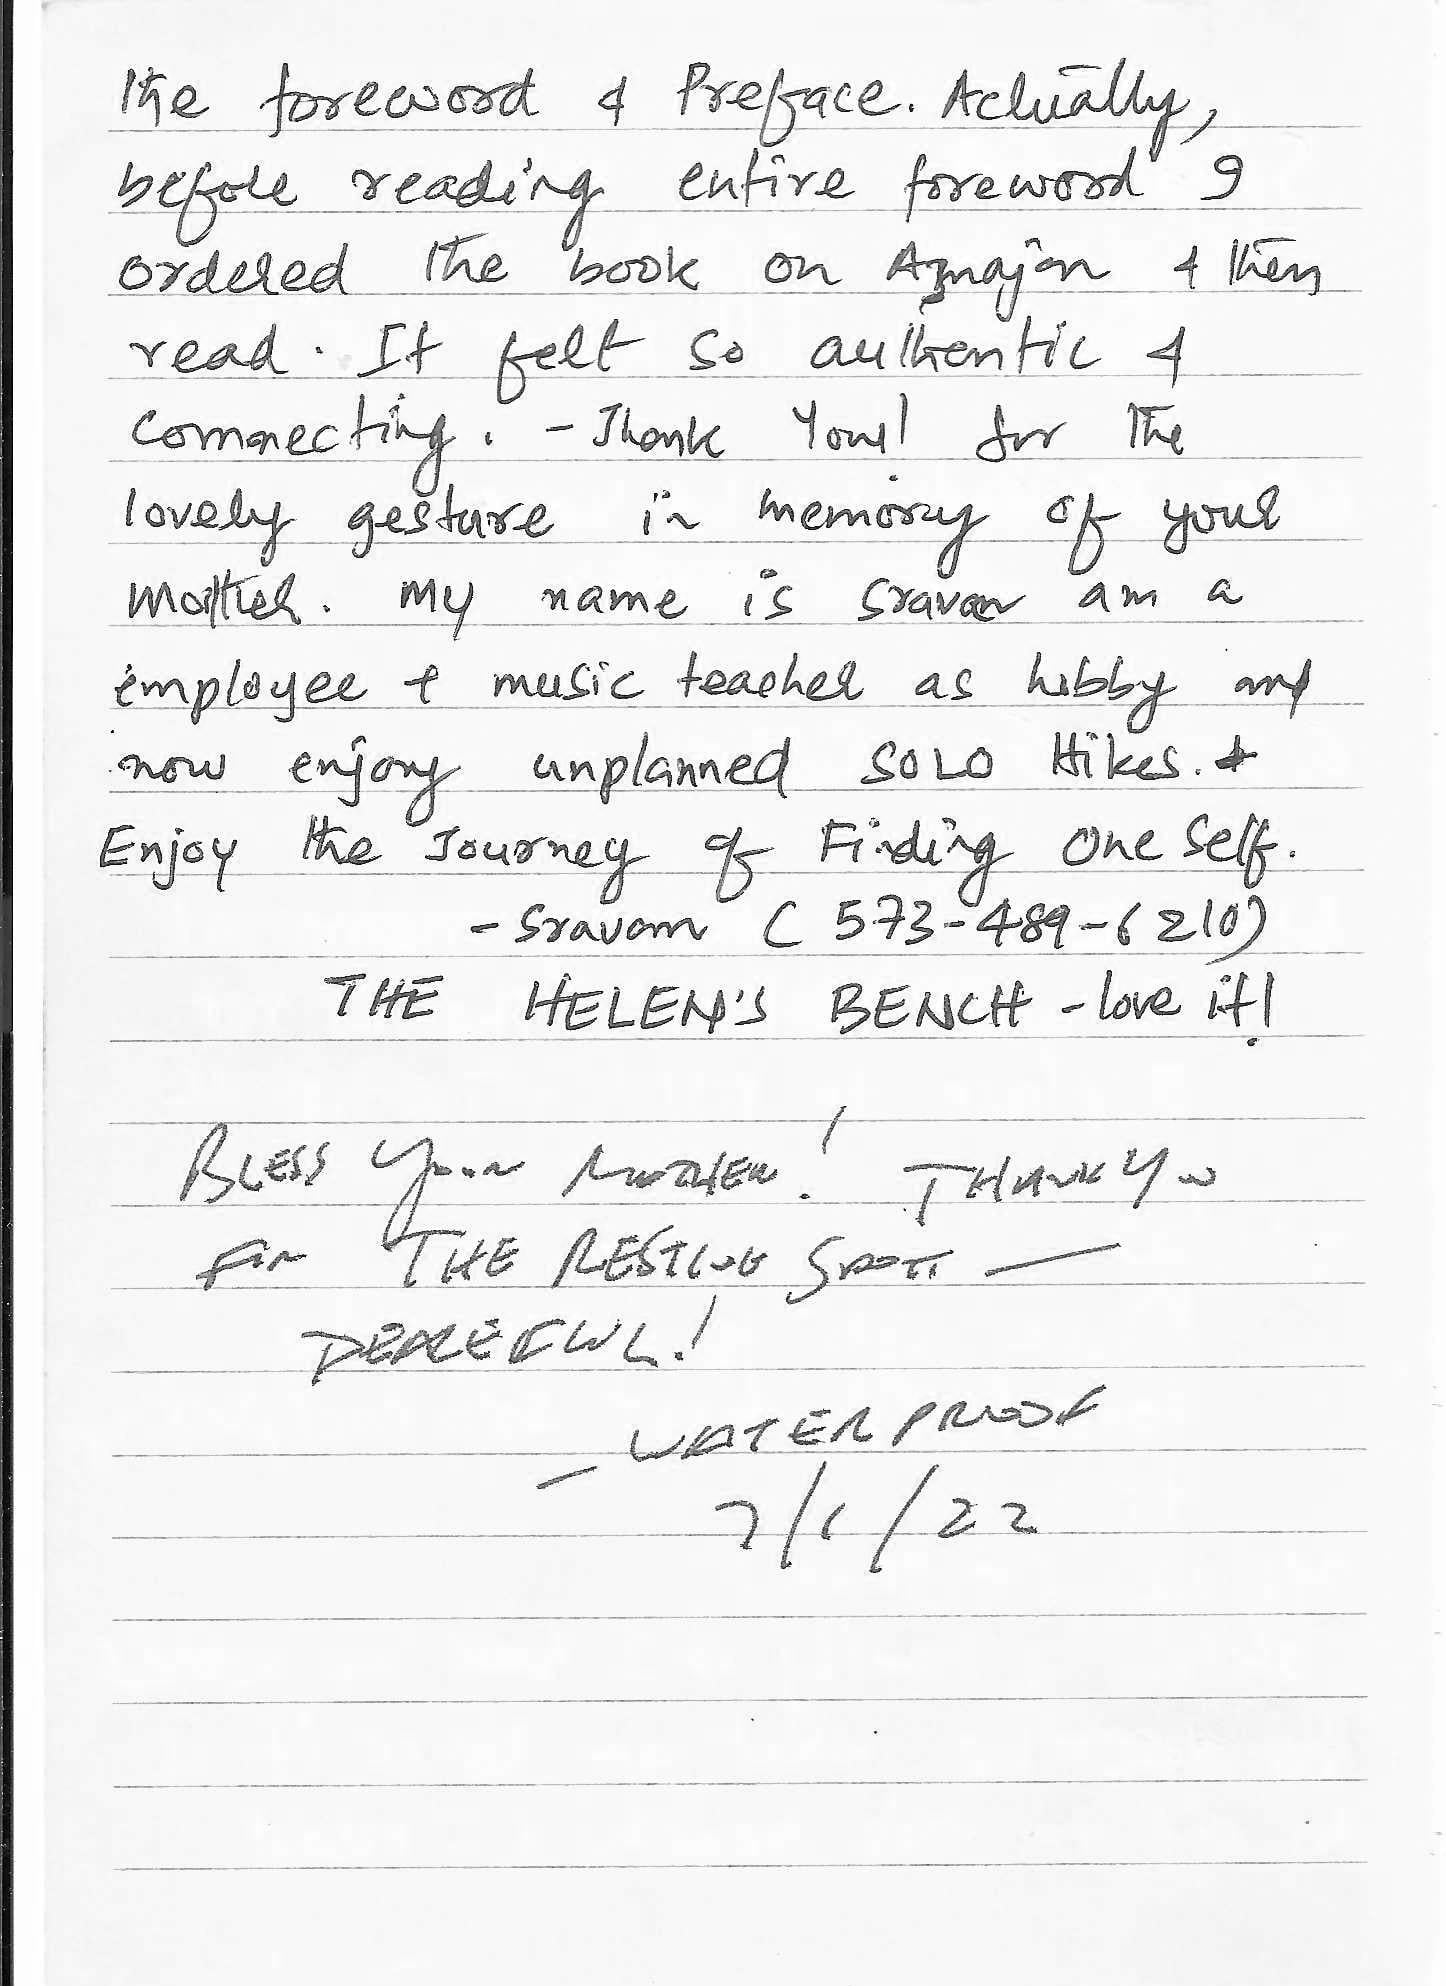 the foreword & Preface. Actually,
before reading entire foreword I
ordered the book on Amajon & then
read. It felt so authentic &
connecting. - Thank You! for the
lovely gesture in memory of your
Mother. My name is Sravan am a
employee & music teacher as hobby and
now enjoy unplanned SOLO Hikes. &
Enjoy the Journey of Finding One Self.
- Sravan (573-489-6210)
THE HELEN'S BENCH - love it!
BLESS YOUR MOTHER! THANK YOU
FOR THE RESTING SPOT —
PEACEFUL!
- WATERPROOF
7/1/22